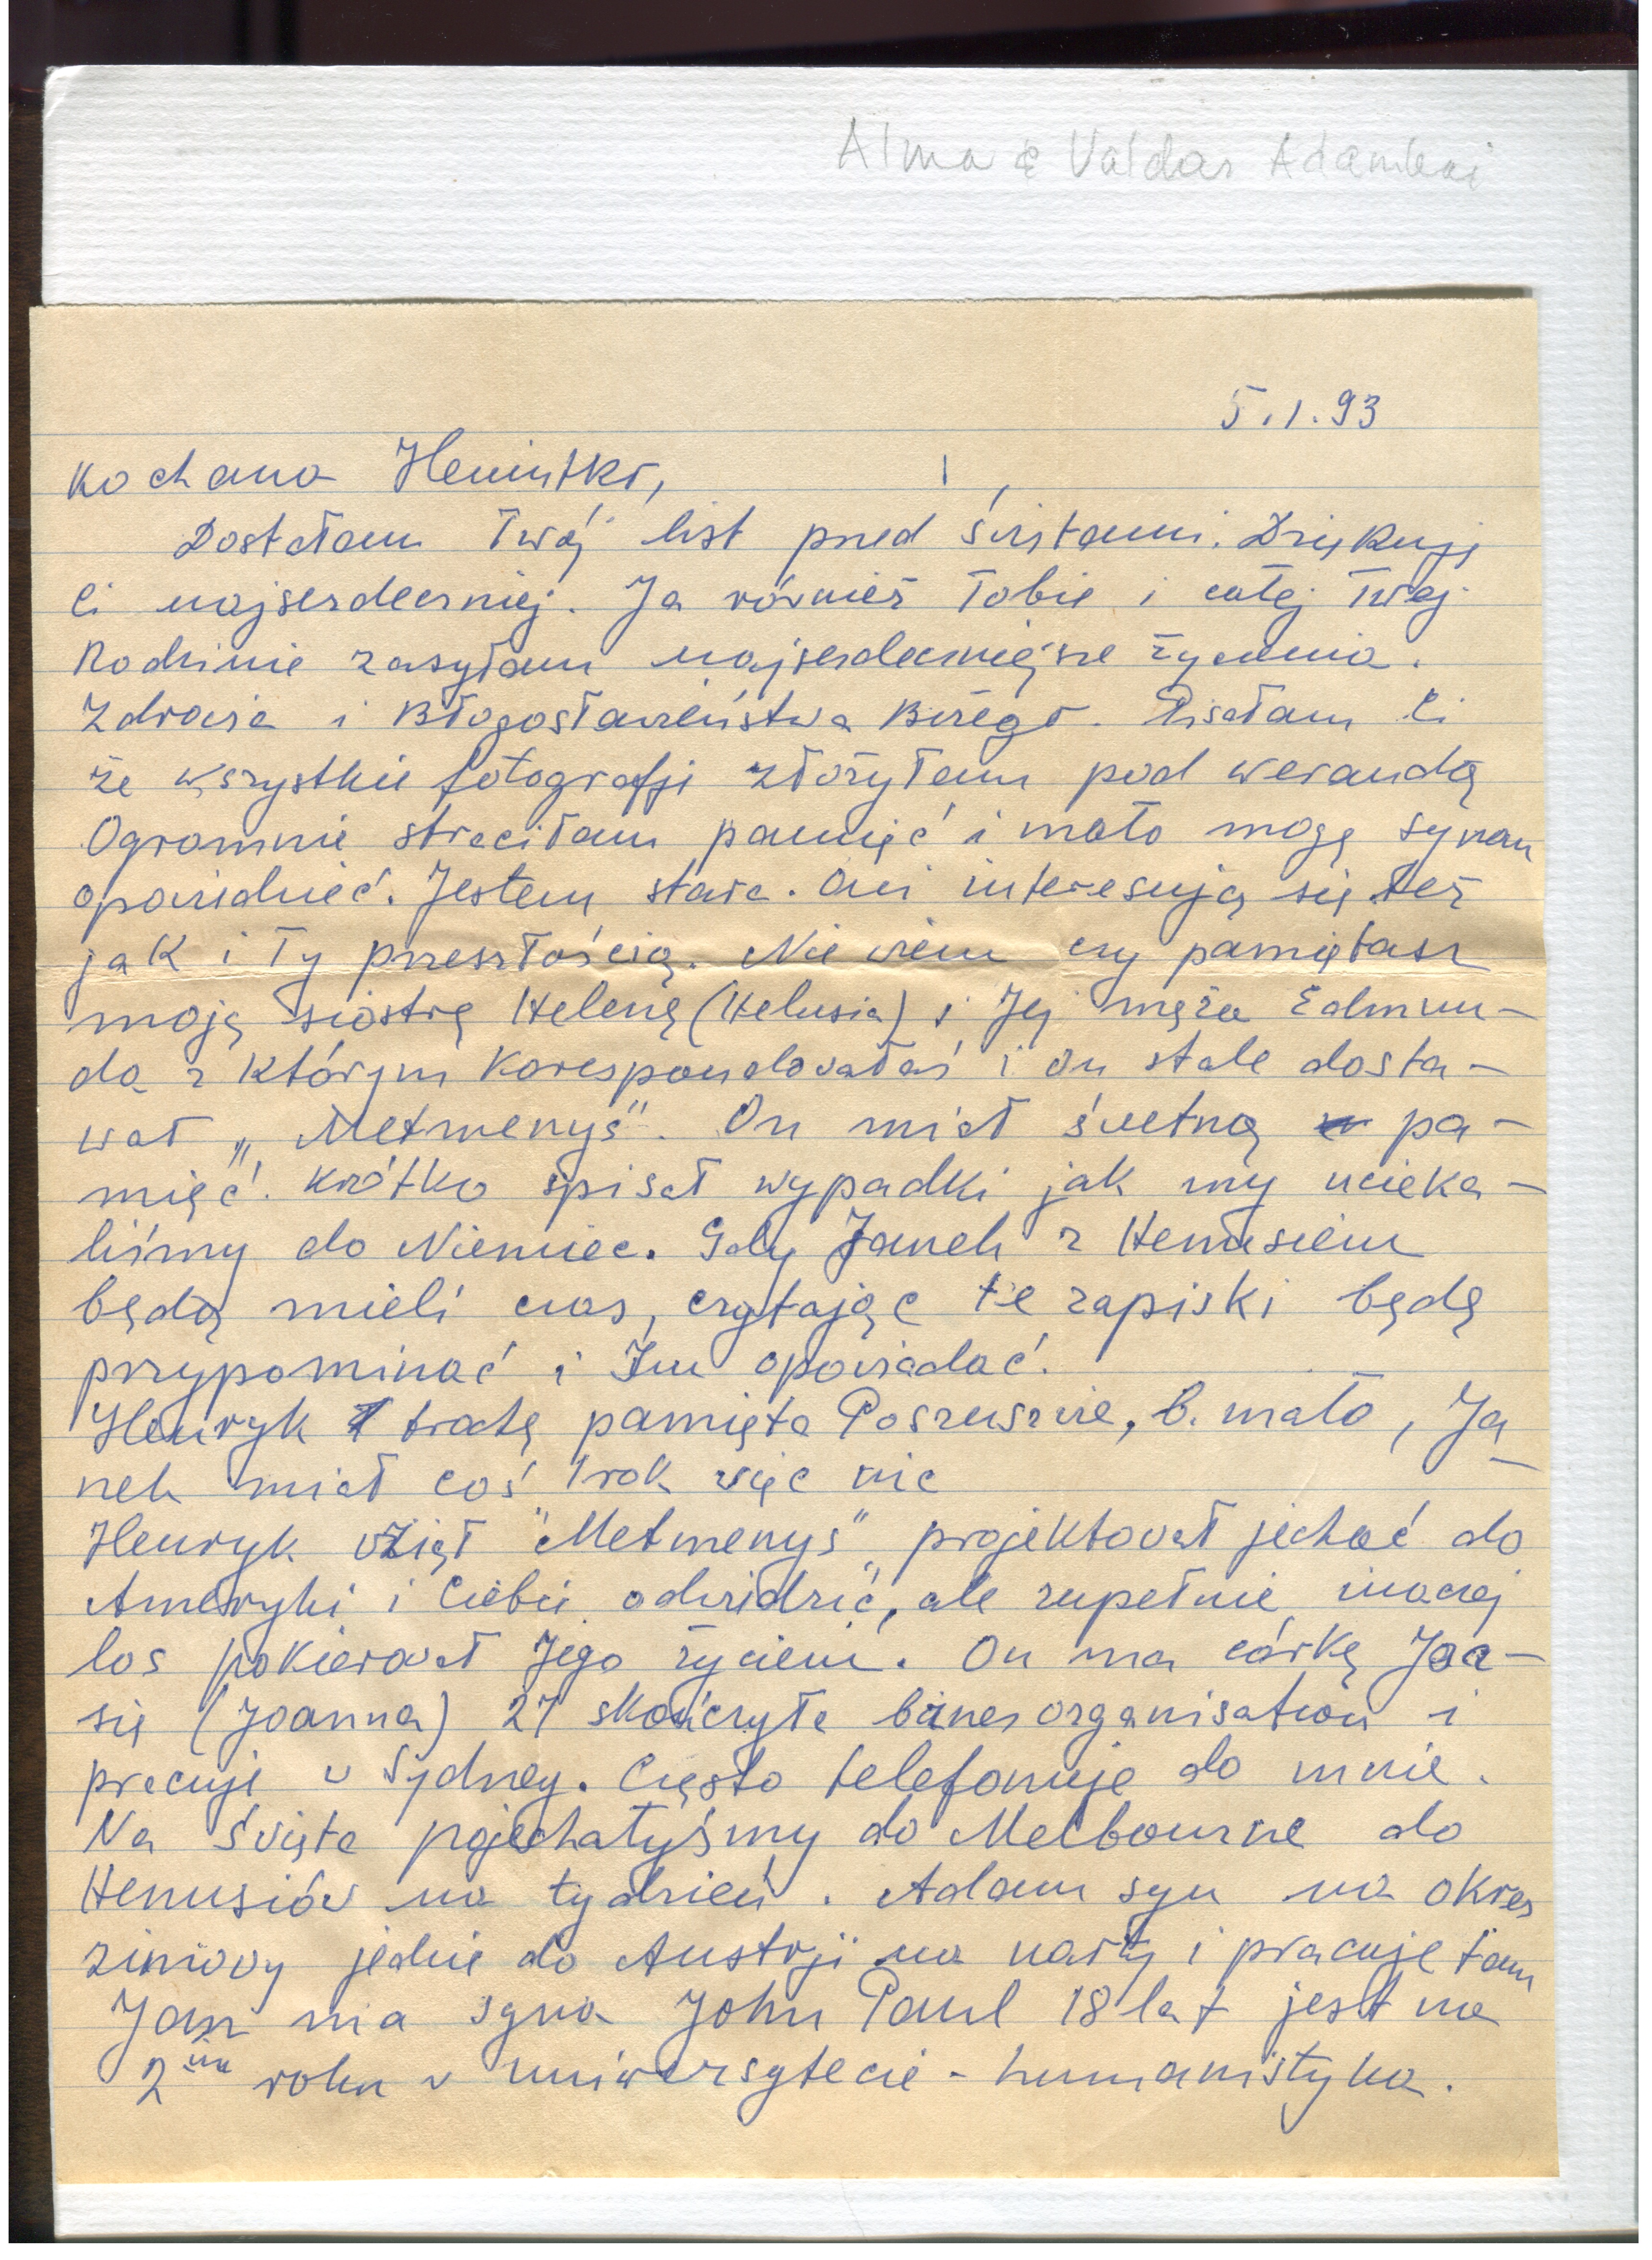 Alma & Valdas Adamkai
5.1.93
Kochana
Dostałam Twój list pred świętami. Dziękuję
Ci najserdeczniej. Ja również Tobie i całej Twej
Rodzinie zasyłam najserdeczniejsze życzenia.
Zdrowia i Błogosławieństwa Bożego. Pisałam Ci
że wszystkie fotografji złożyłam pod werandą
Ogromnie straciłam pamięć i mało mogę synom
opowiedzieć. Jestem stara. Oni interesują się też
jak i Ty przeszłością. Nie wiem czy pamiętasz
moją siostrę Helenę (Helusia) i Jej męża Edmun-
da z którym Korespondowałaś i on stale dosta-
wał „Metmenys". On miał świetną pa-
mięć. Krótko spisał wypadki jak my ucieka-
liśmy do Niemiec. Gdy Janek z Heniusiem
będą mieli czas, czytając te zapiski będę
przypominać i Im opowiadać.
Henryk trochę pamięta Poszuszwie, b. mało, Ja-
nek miał coś 1 rok więc nic
Henryk wziął "Metmenys" projektował jechać do
Ameryki i Ciebie odwiedzić, ale zupełnie inaczej
los pokierował Jego życiem. On ma córkę Joa-
się (Joanna) 27 skończyła biznes organisation i
pracuje w Sydney. Często telefonuje do mnie.
Na święta pojechałyśmy do Melbourne do
Heniusiów na tydzień. Adam syn na okres
zimowy jedzie do Austrji na narty i pracuje tam
Jan ma syna John Paul 18 lat jest na
2im roku w uniwersytecie - humanistyka.